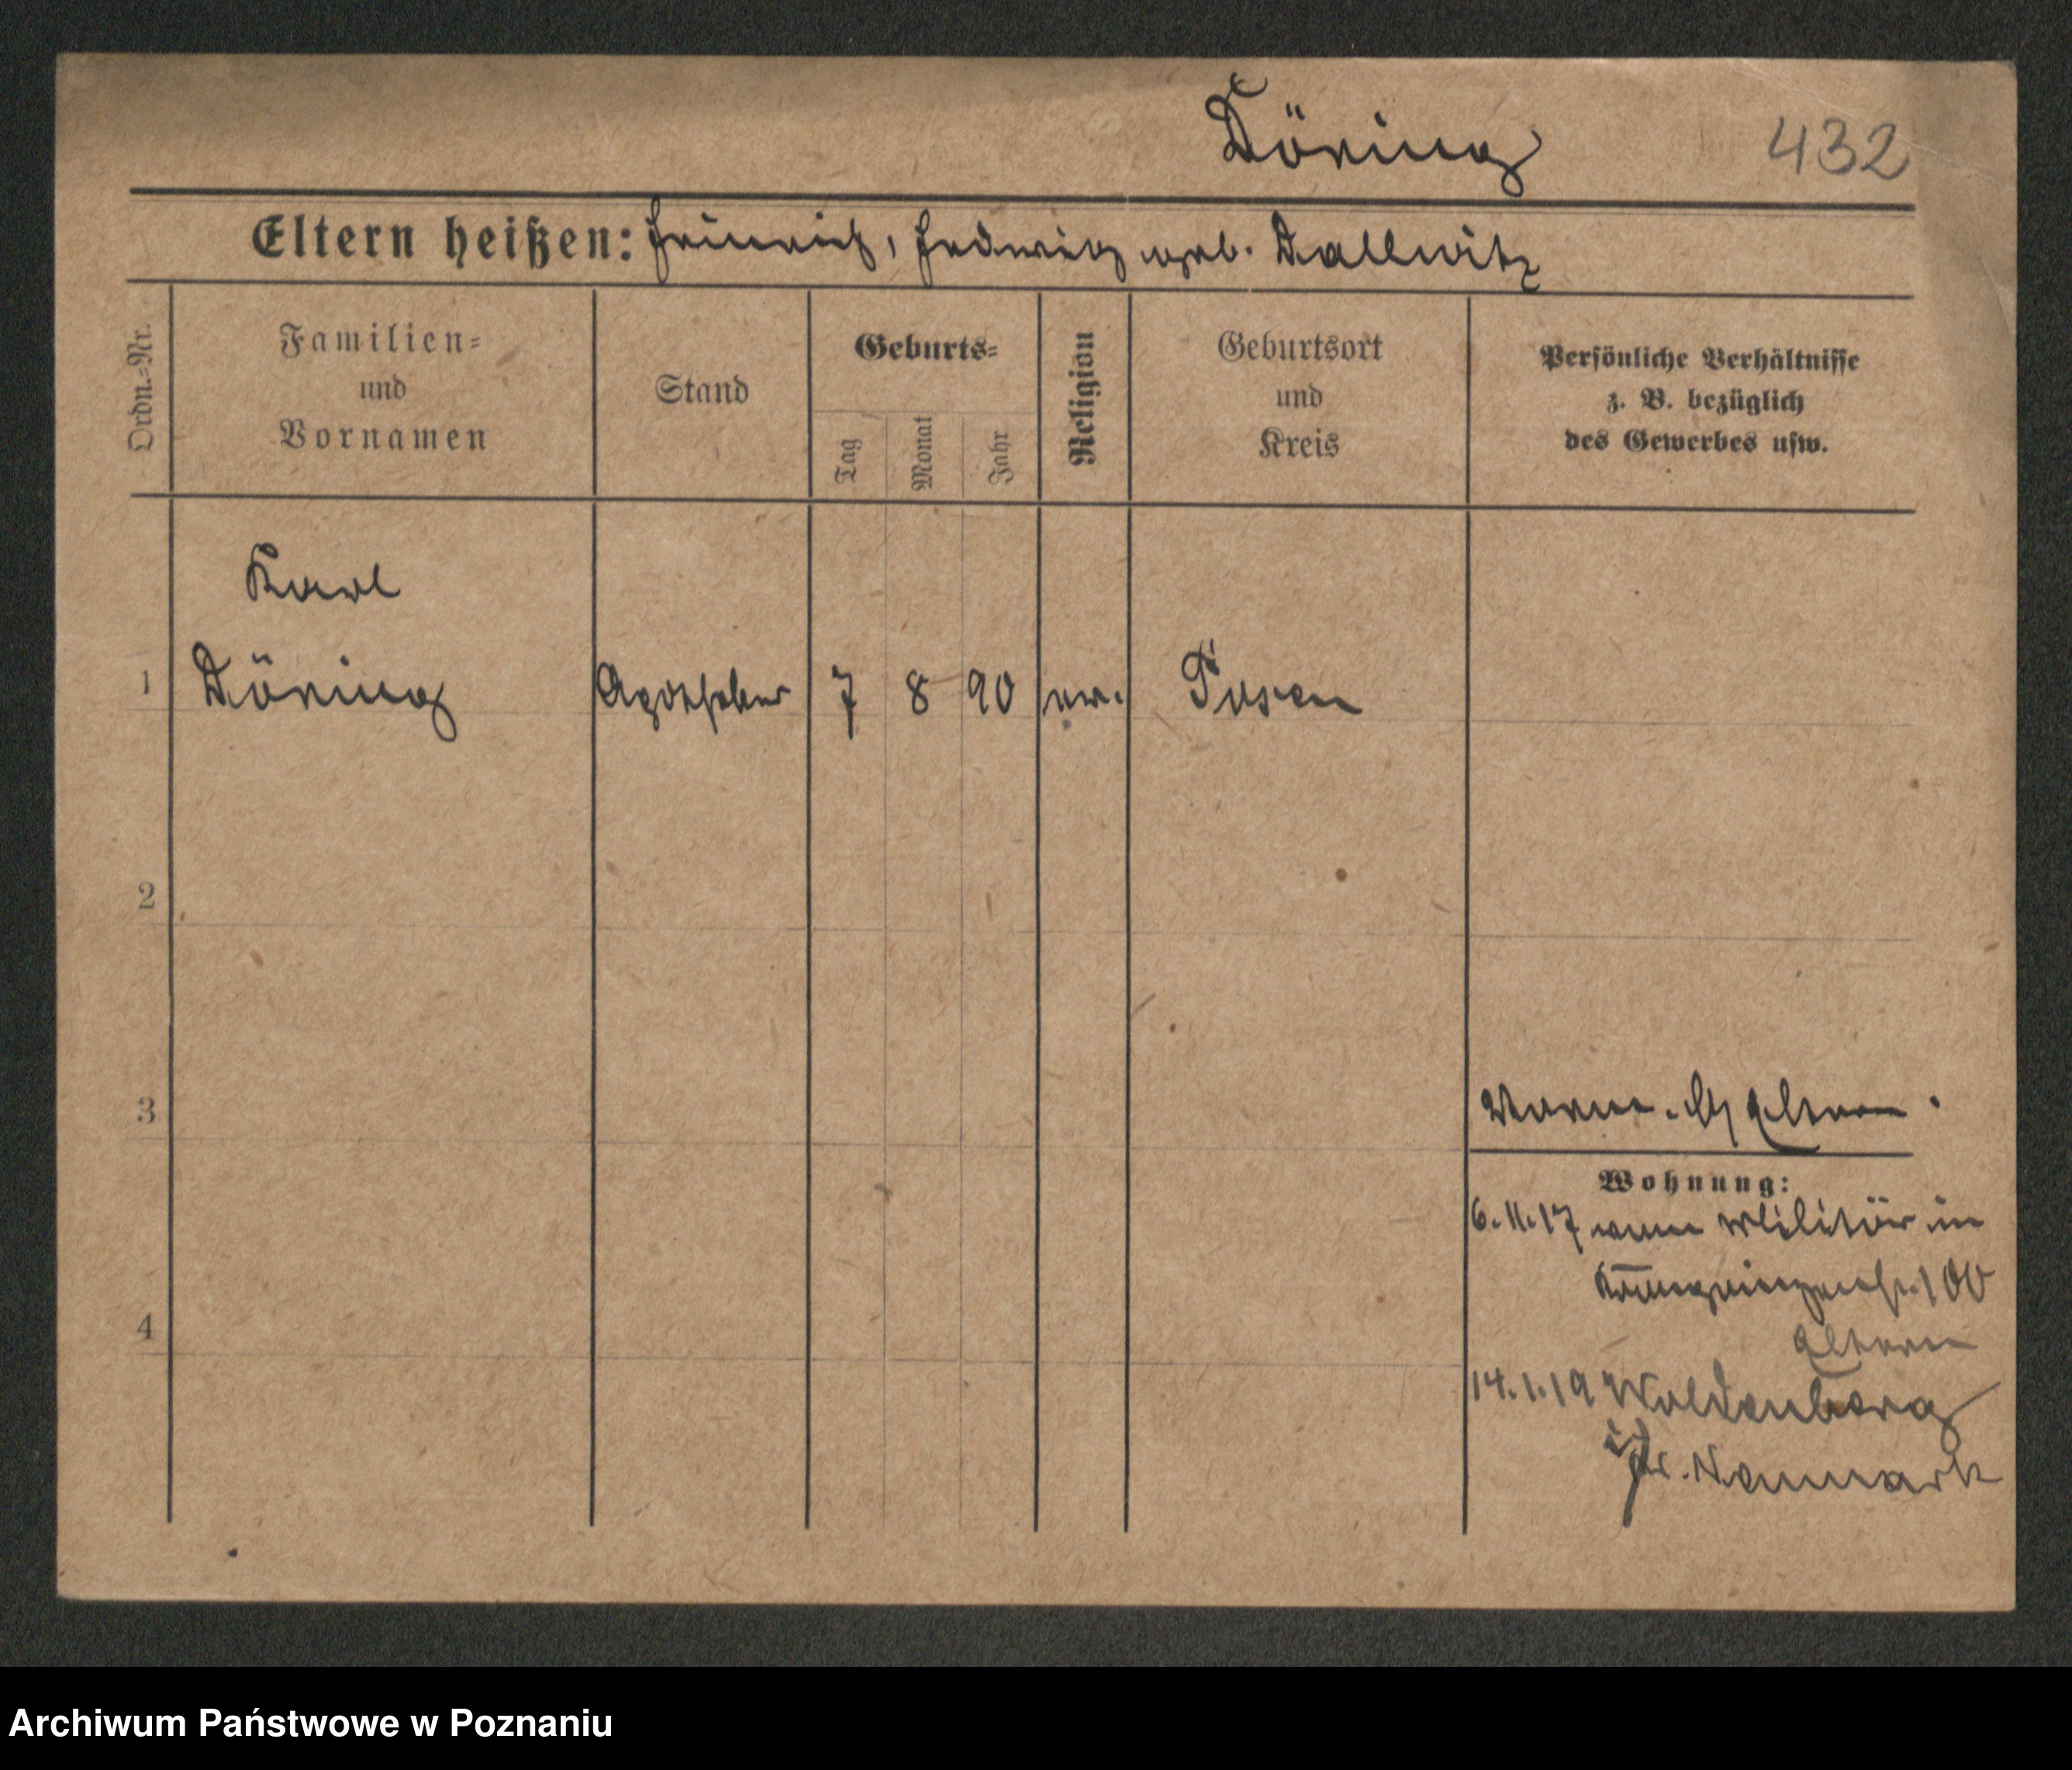 Döring 432
Eltern heißen: Heinrich, Hedwig geb. Dallwitz
Ordn.=Nr.
Familien=
und
Vornamen
Stand
Geburts=
Tag
Monat
Jahr
Religion
Geburtsort
und
Kreis
Persönliche Verhältnisse
z. B. bezüglich
des Gewerbes usw.
Karl
1 Döring Apotheker 7 8 90 ev. Posen
2
3
Eltern.
Wohnung:
6.11.17 vom Militär in
100
4
Eltern
14.1.19 Woldenberg
Kr. Neumark
Archiwum Państwowe w Poznaniu